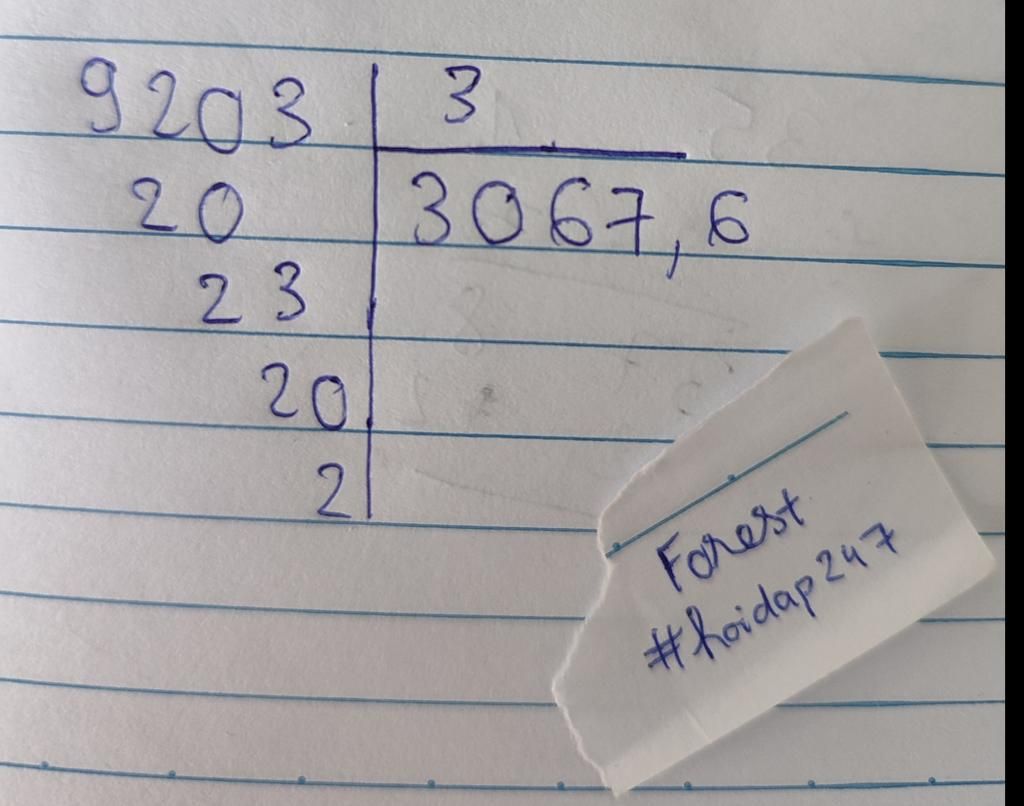 9203 3
20 3067,6
23
20
2
Forest
#hoidap247